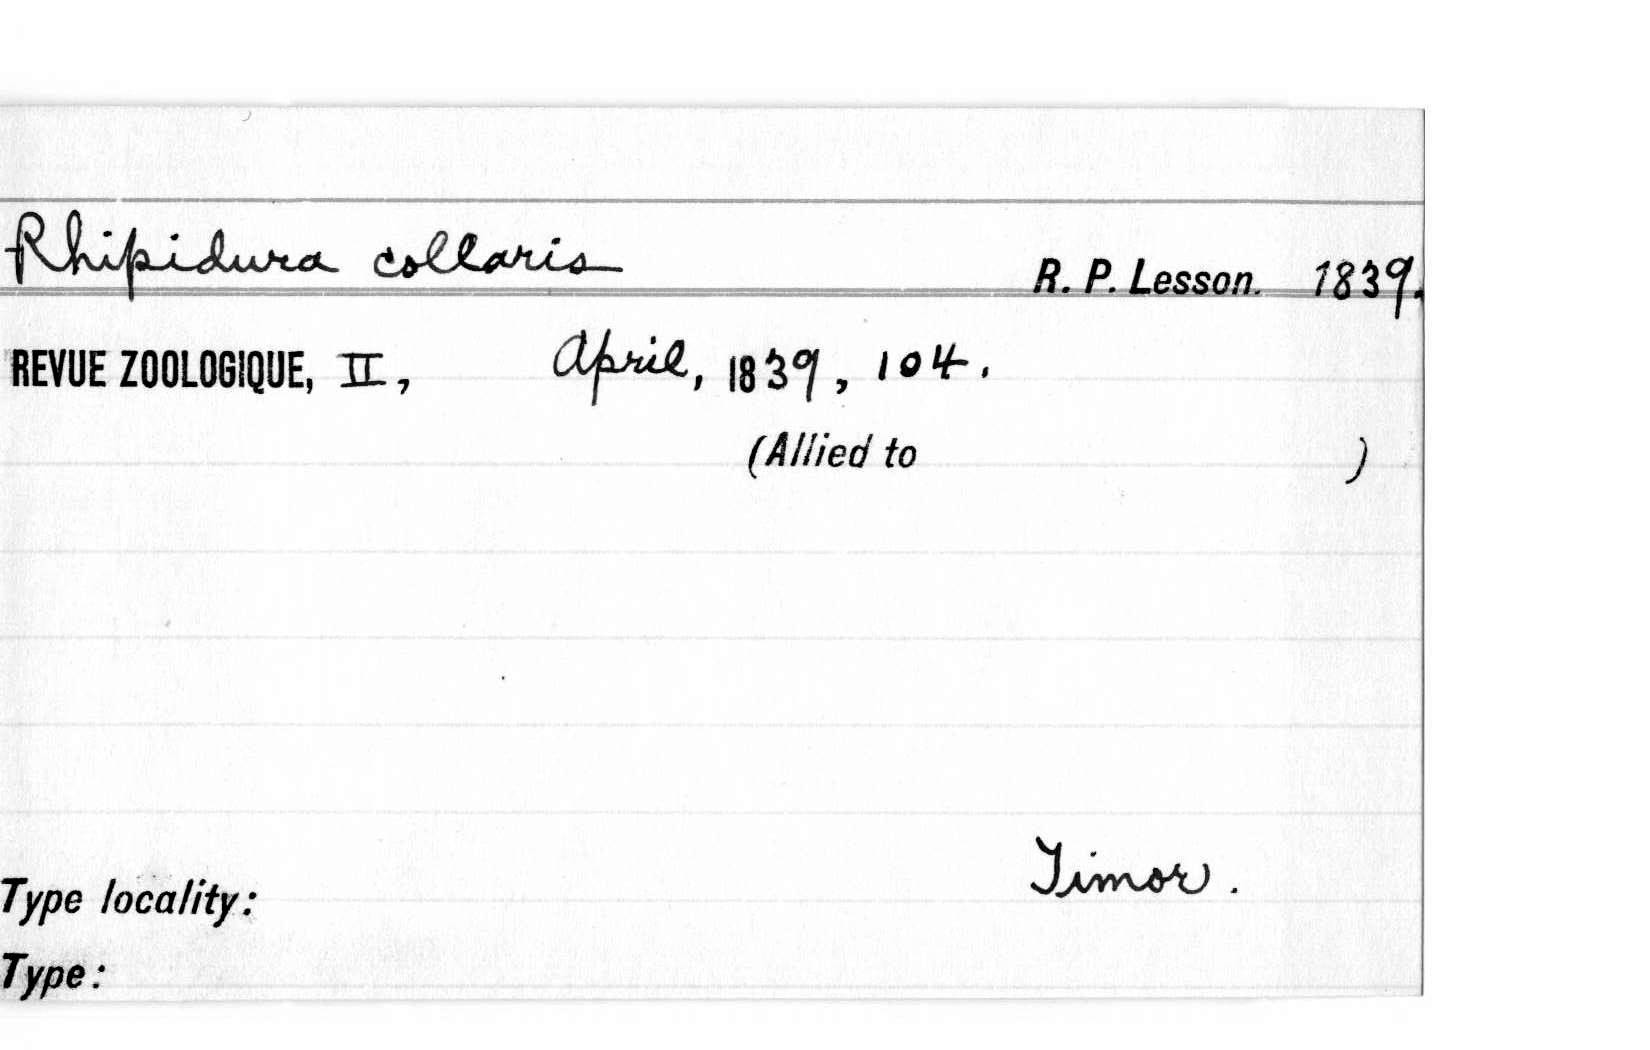 Rhipidura collaris R. P. Lesson. 1839.
REVUE ZOOLOGIQUE, II, April, 1839, 104.
(Allied to )
Timor.
Type locality:
Type: